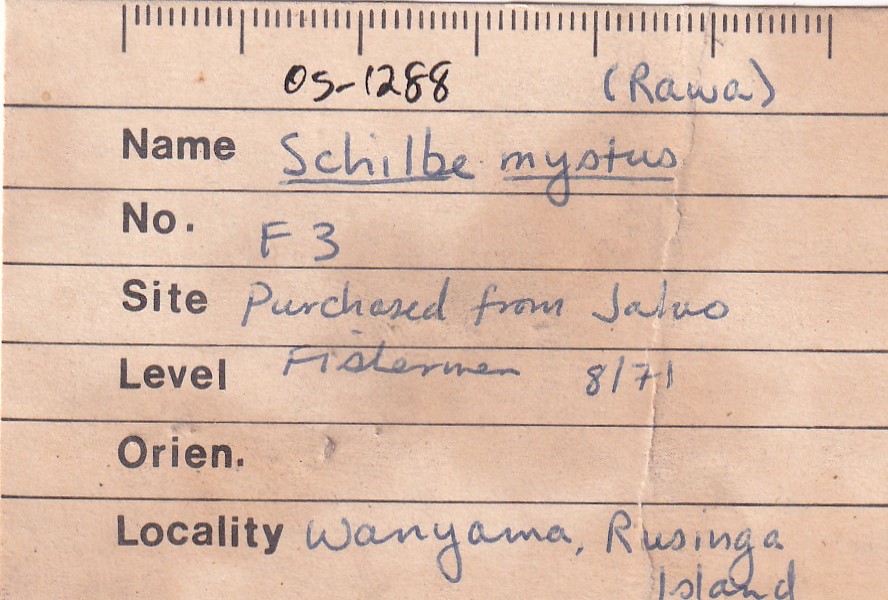 OS-1288 (Rawa)
Name Schilbe mystus
No. F 3
Site Purchased from Jaluo
Level Fishermen 8/71
Orien.
Locality Wanyama, Rusinga
Island